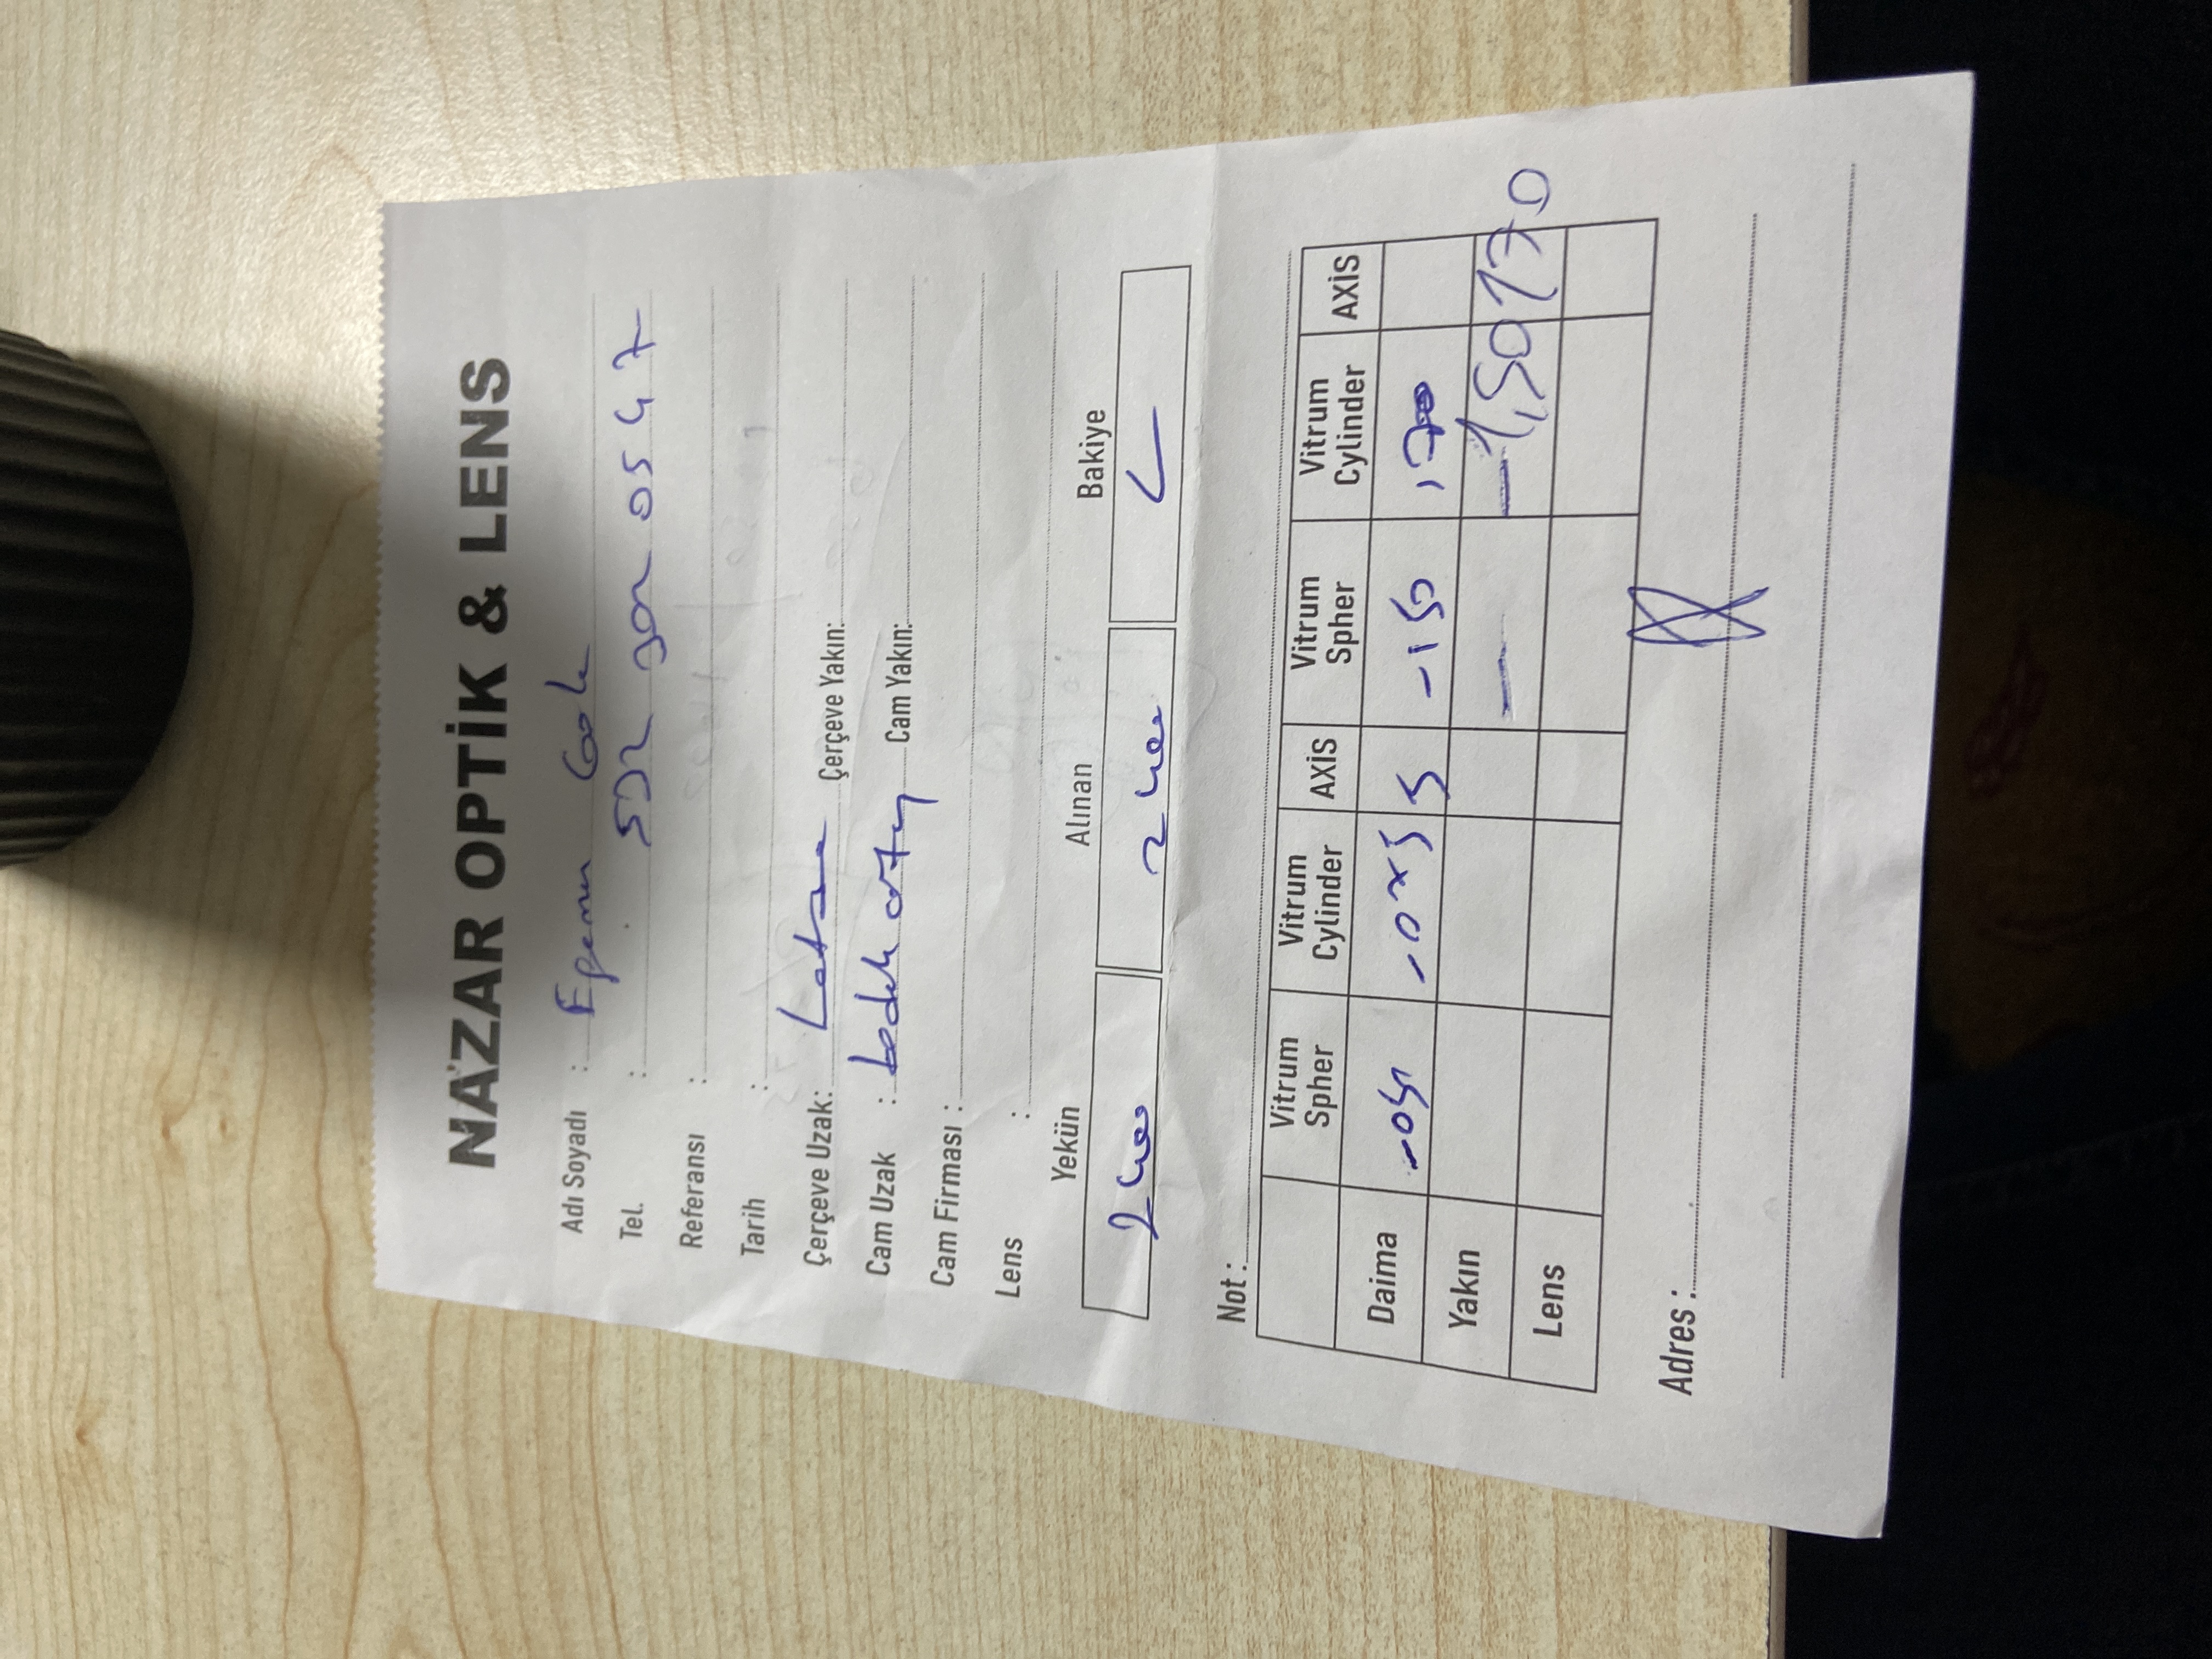 NAZAR OPTİK & LENS
Adı Soyadı : Egemen Gok
Tel. : 532 302 0547
Referansı :
Tarih :
Çerçeve Uzak: Çerçeve Yakın:
Cam Uzak : Cam Yakın:
Cam Firması :
Lens :
Yekün Alınan Bakiye
2400 2400
Not :
Vitrum Spher Vitrum Cylinder AXİS Vitrum Spher Vitrum Cylinder AXİS
Daima -0.75 5 -150 170
Yakın — -1,50 170
Lens
Adres :